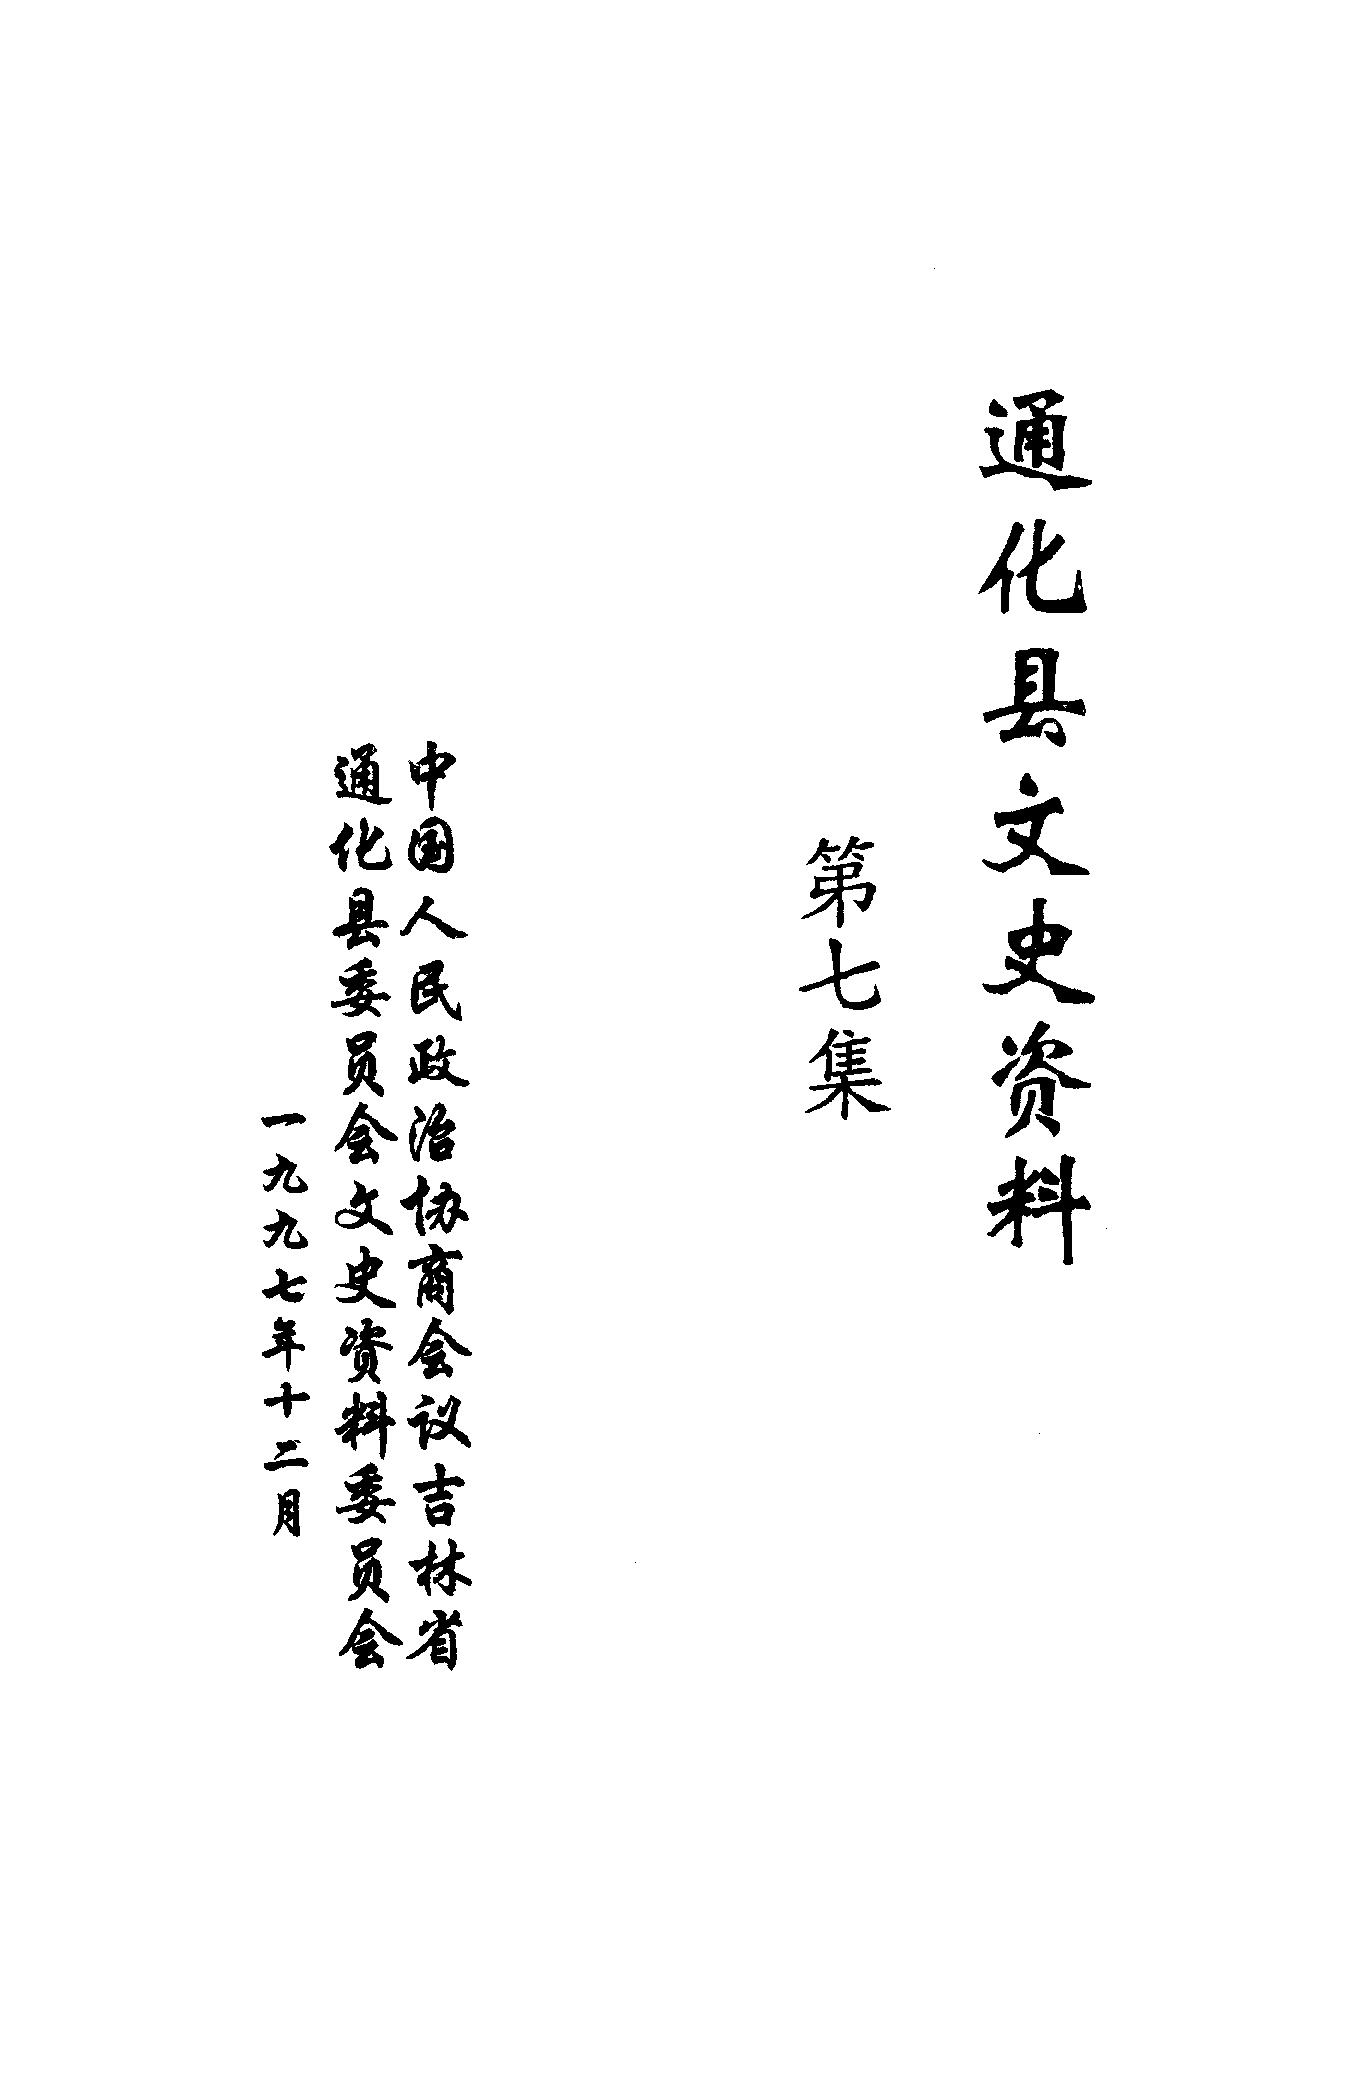 通化县文史资料
第七集
中国人民政治协商会议吉林省
通化县委员会文史资料委员会
一九九七年十二月